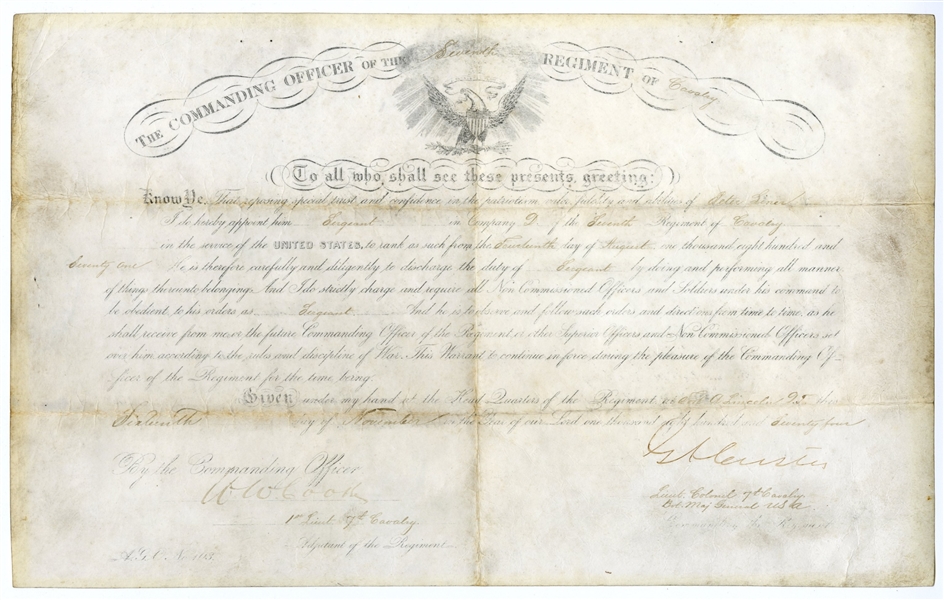 THE COMMANDING OFFICER OF THE Seventh REGIMENT OF Cavalry
To all who shall see these presents, greeting:
Know Ye, That reposing special trust and confidence in the patriotism valor, fidelity and abilities of
I do hereby appoint him Sergeant in Company D of the Seventh Regiment of Cavalry
in the service of the UNITED STATES, to rank as such from the day of August one thousand eight hundred and
Seventy one He is therefore carefully and diligently to discharge the duty of Sergeant by doing and performing all manner
of things thereunto belonging. And I do strictly charge and require all Non Commissioned Officers and Soldiers under his command to
be obedient to his orders as Sergeant And he is to observe and follow such orders and directions from time to time, as he
shall receive from me, or the future Commanding Officer of the Regiment or other Superior Officers and Non Commissioned Officers, set
over him according to the rules and discipline of War. This Warrant to continue in force during the pleasure of the Commanding Of-
-ficer of the Regiment for the time being.
Given under my hand at the Head Quarters of the Regiment at A Lincoln D.T. this
day of November in the Year of our Lord one thousand eight hundred and Seventy four
By the Commanding Officer
W W Cook
1st Lieut 7th Cavalry.
Adjutant of the Regiment
A.G.O. No.
GACuster
Lieut. Colonel 7th Cavalry
Bvt. Maj General U.S.A
Commanding the Regiment